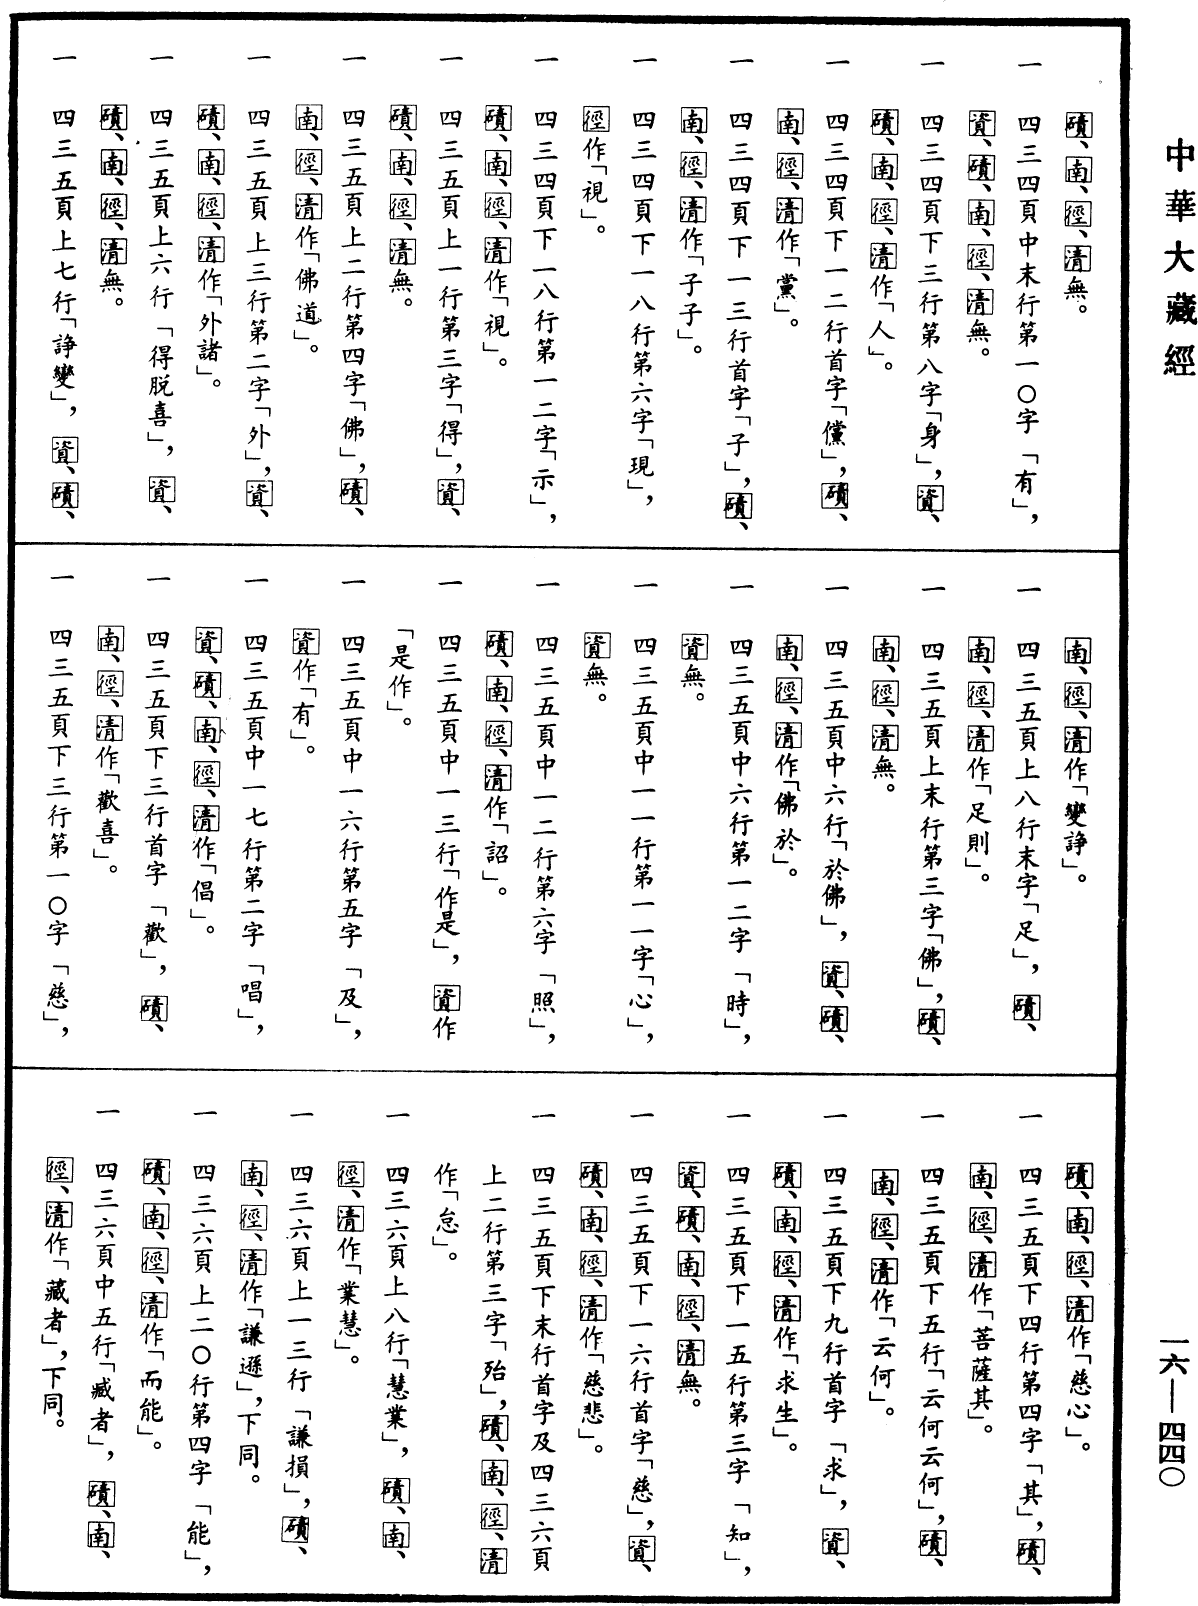 中華大藏經
磧、南、徑、清無。
一　四三四頁中末行第一〇字「有」，
資、磧、南、徑、清無。
一　四三四頁下三行第八字「身」，資、
磧、南、徑、清作「人」。
一　四三四頁下一二行首字「儻」，磧、
南、徑、清作「黨」。
一　四三四頁下一三行首字「子」，磧、
南、徑、清作「子子」。
一　四三四頁下一八行第六字「現」，
徑作「視」。
一　四三四頁下一八行第一二字「示」，
磧、南、徑、清作「視」。
一　四三五頁上一行第三字「得」，資、
磧、南、徑、清無。
一　四三五頁上二行第四字「佛」，磧、
南、徑、清作「佛道」。
一　四三五頁上三行第二字「外」，資、
磧、南、徑、清作「外諸」。
一　四三五頁上六行「得脱喜」，資、
磧、南、徑、清無。
一　四三五頁上七行「諍變」，資、磧、
南、徑、清作「變諍」。
一　四三五頁上八行末字「足」，磧、
南、徑、清作「足則」。
一　四三五頁上末行第三字「佛」，磧、
南、徑、清無。
一　四三五頁中六行「於佛」，資、磧、
南、徑、清作「佛於」。
一　四三五頁中六行第一二字「時」，
資無。
一　四三五頁中一一行第一一字「心」，
資無。
一　四三五頁中一二行第六字「照」，
磧、南、徑、清作「詔」。
一　四三五頁中一三行「作是」，資作
「是作」。
一　四三五頁中一六行第五字「及」，
資作「有」。
一　四三五頁中一七行第二字「唱」，
資、磧、南、徑、清作「倡」。
一　四三五頁下三行首字「歡」，磧、
南、徑、清作「歡喜」。
一　四三五頁下三行第一〇字「慈」，
磧、南、徑、清作「慈心」。
一　四三五頁下四行第四字「其」，磧、
南、徑、清作「菩薩其」。
一　四三五頁下五行「云何云何」，磧、
南、徑、清作「云何」。
一　四三五頁下九行首字「求」，資、
磧、南、徑、清作「求生」。
一　四三五頁下一五行第三字「知」，
資、磧、南、徑、清無。
一　四三五頁下一六行首字「慈」，資、
磧、南、徑、清作「慈悲」。
一　四三五頁下末行首字及四三六頁
上二行第三字「殆」，磧、南、徑、清
作「怠」。
一　四三六頁上八行「慧業」，磧、南、
徑、清作「業慧」。
一　四三六頁上一三行「謙損」，磧、
南、徑、清作「謙遜」，下同。
一　四三六頁上二〇行第四字「能」，
磧、南、徑、清作「而能」。
一　四三六頁中五行「臧者」，磧、南、
徑、清作「藏者」，下同。
一六—四四〇